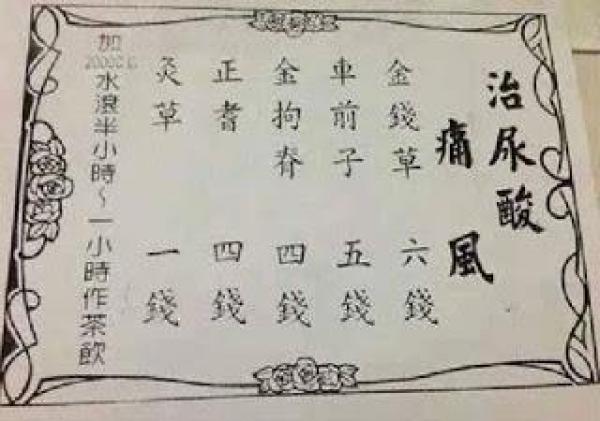 治尿酸
痛風
金錢草 六錢
車前子 五錢
金拘脊 四錢
正耆 四錢
灸草 一錢
加2000CC水滾半小時~一小時作茶飲